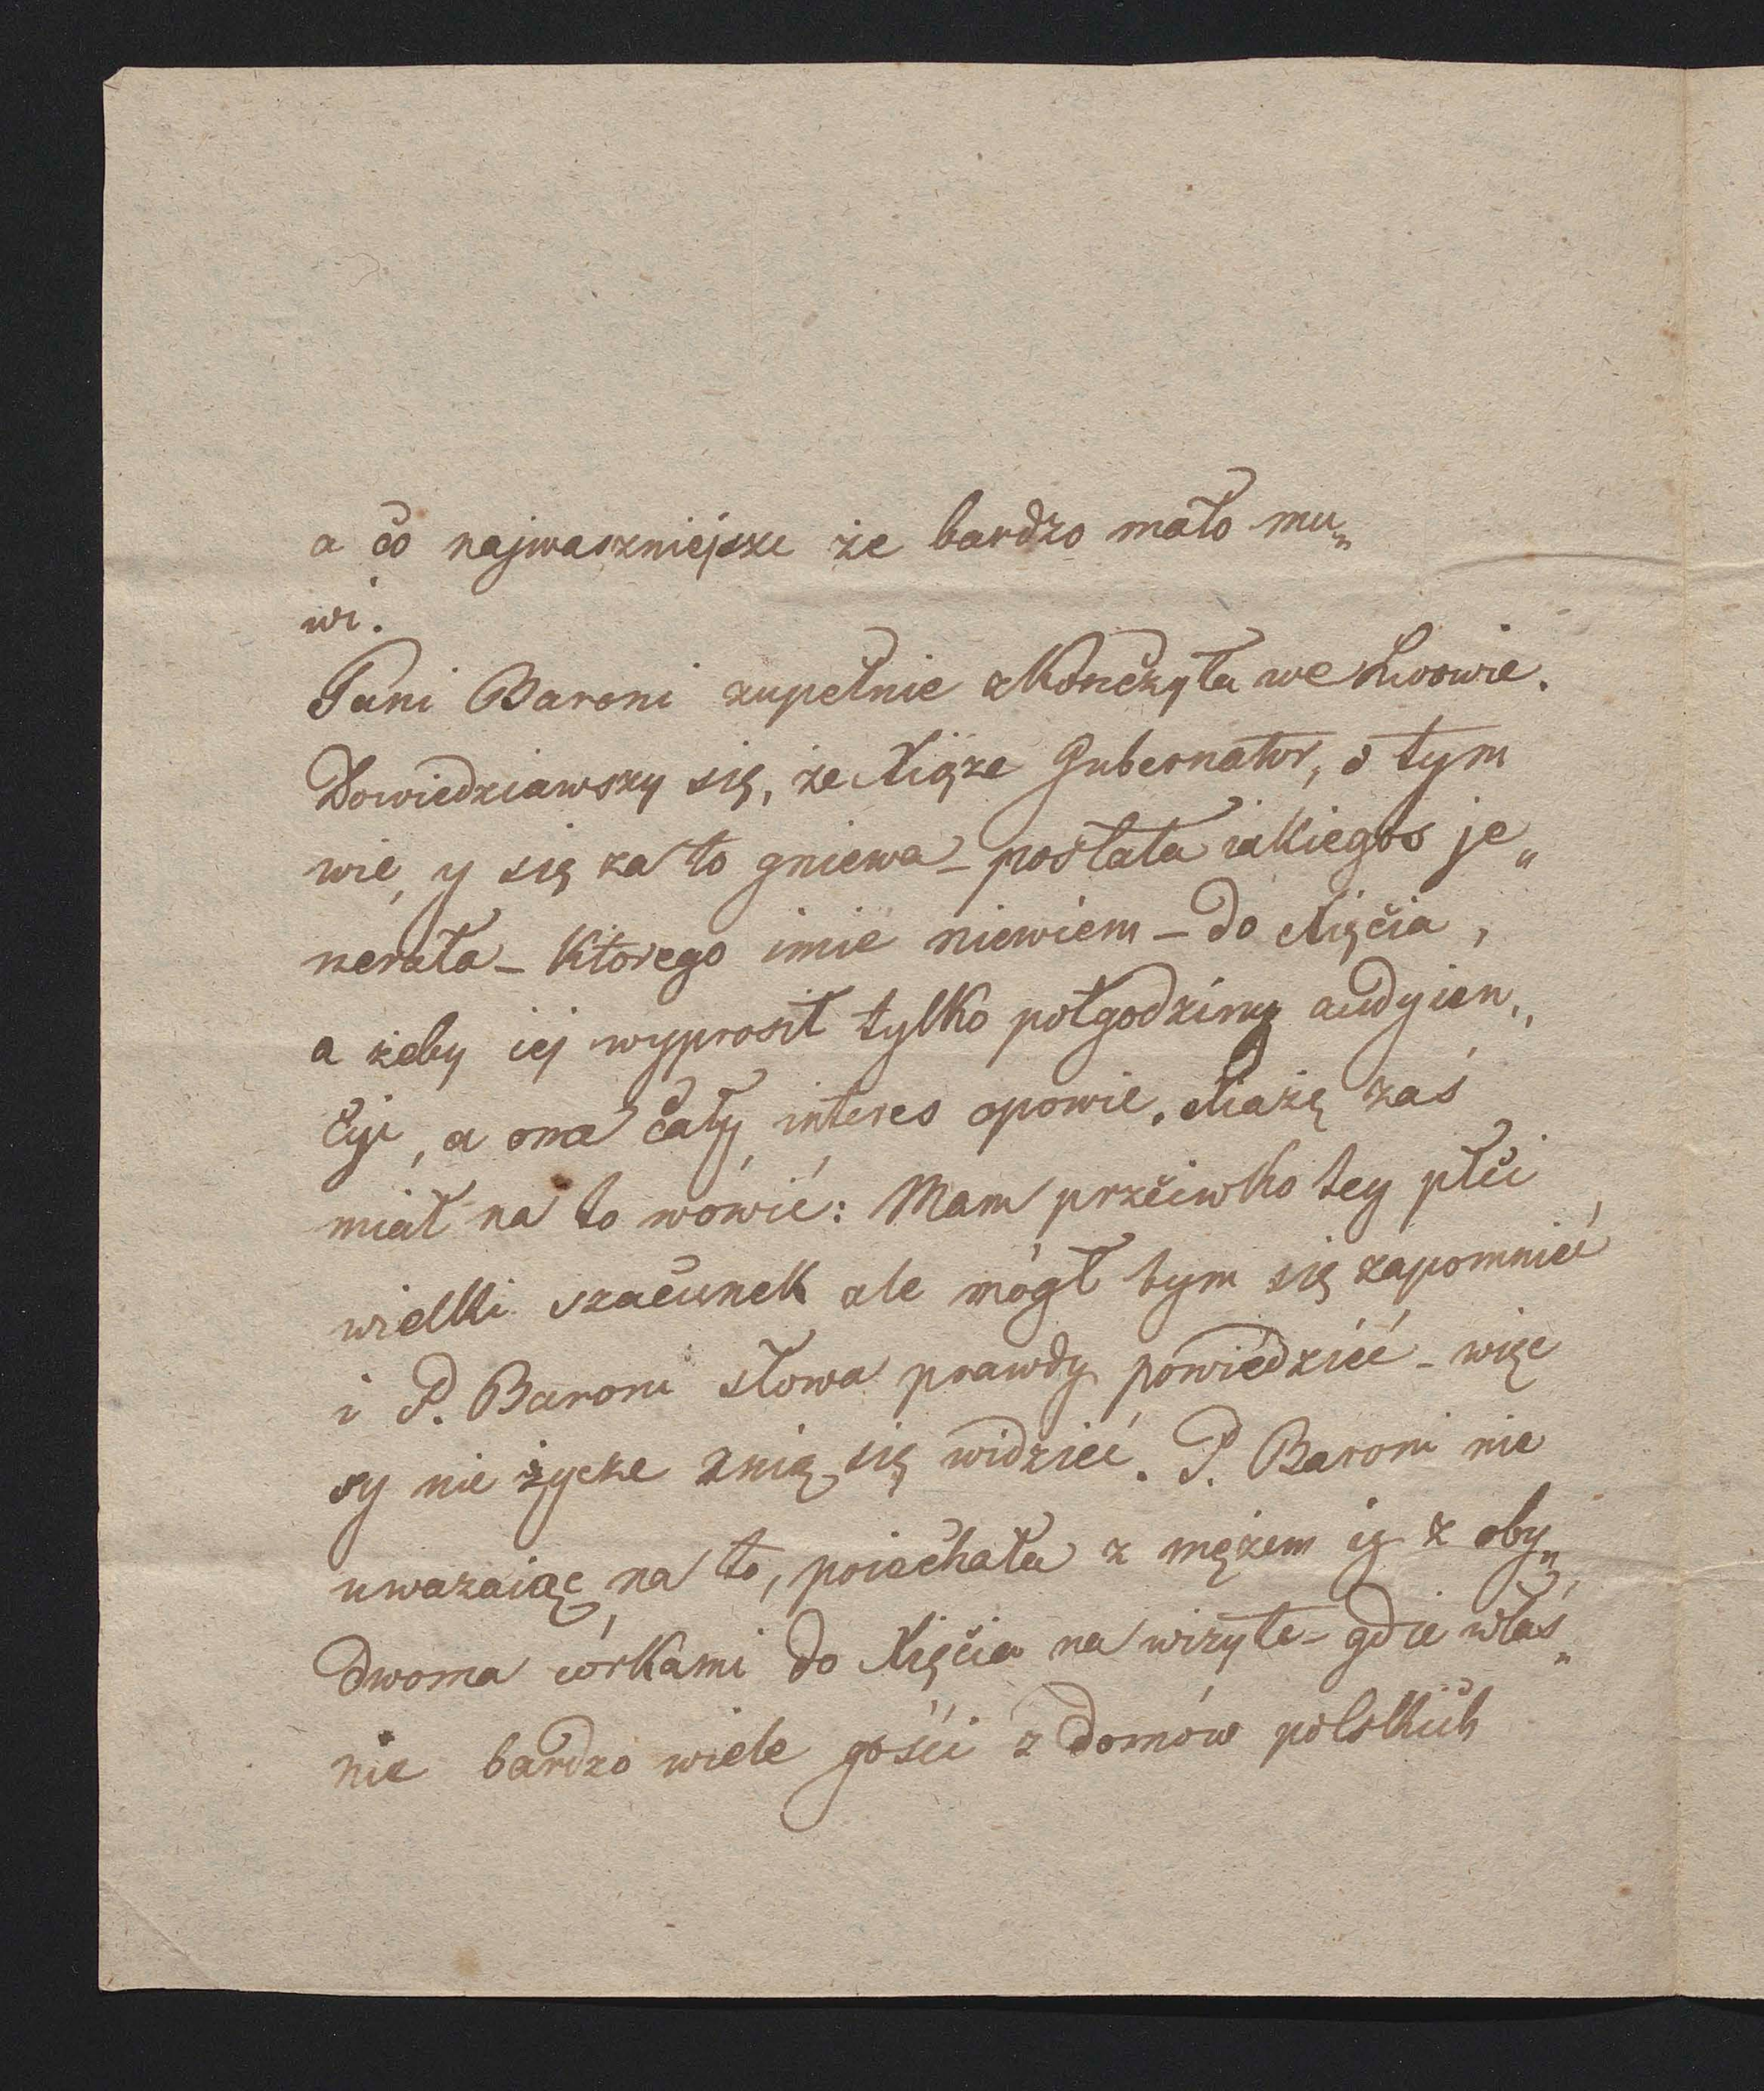 a co najwaszniejsze że bardzo mało mu„
wi.
Pani Baroni zupełnie zkonczyła we Lwowie.
Dowiedziawszy się, że Xiąże Gubernator, o tym
wie, y się za to gniewa – posłała iakiegos je„
nerała – ktorego imie niewiem – do Xięcia,
a żeby iej wyprosił tylko połgodziny audyien„
cyi, a ona cały interes opowie. Xiażę zaś
miał na to mówić: Mam przeciwko tey płci
wielki szacunek ale mógł bym się zapomnieć
i P. Baroni słowa prawdy powiedzieć – więc
sy nie życze znią się widzieć. P. Baroni nie
uważaiąc na to, poiechała z mężem iz z oby„
dwoma córkami do Xięcia na wizyte – gdzie właś„
nie bardzo wiele gości z domów polskich